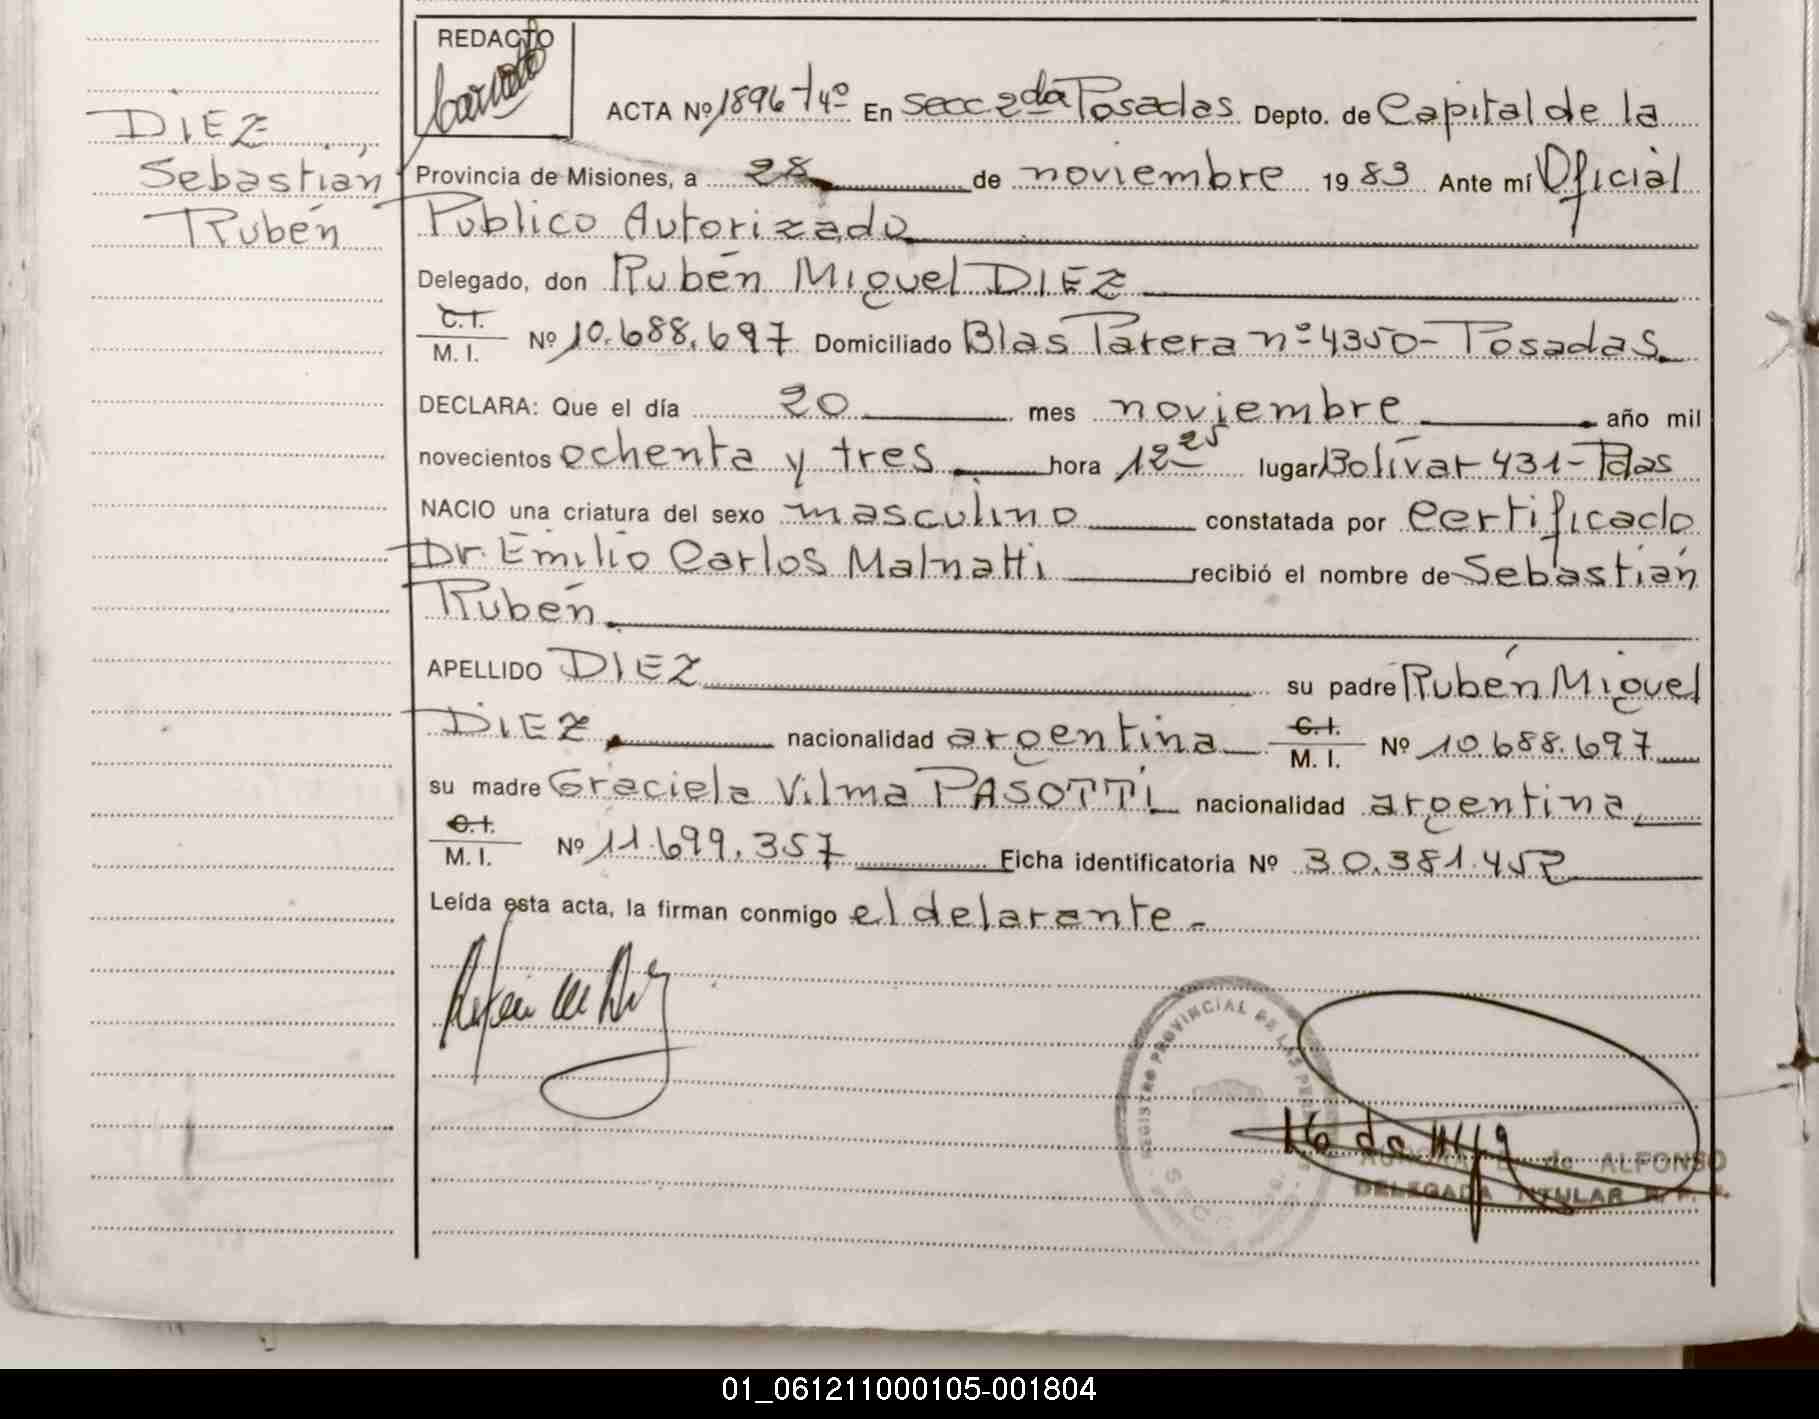 REDACTO
DIEZ,
Sebastián
Rubén
ACTA Nº 1896 Tº 4º En Secc 2da Posadas Depto. de Capital de la
Provincia de Misiones, a 28 de noviembre 1983 Ante mí Oficial
Público Autorizado
Delegado, don Rubén Miguel DIEZ
C.I.
M. I. Nº 10.688.697 Domiciliado Blas Parera nº 4350- Posadas
DECLARA: Que el día 20 mes noviembre año mil
novecientos ochenta y tres hora 12 25 lugar Bolívar 431- Pdas
NACIO una criatura del sexo masculino constatada por certificado
Dr. Emilio Carlos Malnatti recibió el nombre de Sebastián
Rubén
APELLIDO DIEZ su padre Rubén Miguel
DIEZ nacionalidad argentina C.I. M. I. Nº 10.688.697
su madre Graciela Vilma PASOTTI nacionalidad argentina
C.I.
M. I. Nº 11.699.357 Ficha identificatoria Nº 30.381.452
Leída esta acta, la firman conmigo el delarante -
REGISTRO PROVINCIAL DE LAS PER
de ALFONSO
DELEGADA TITULAR R. P. P.
01_061211000105-001804